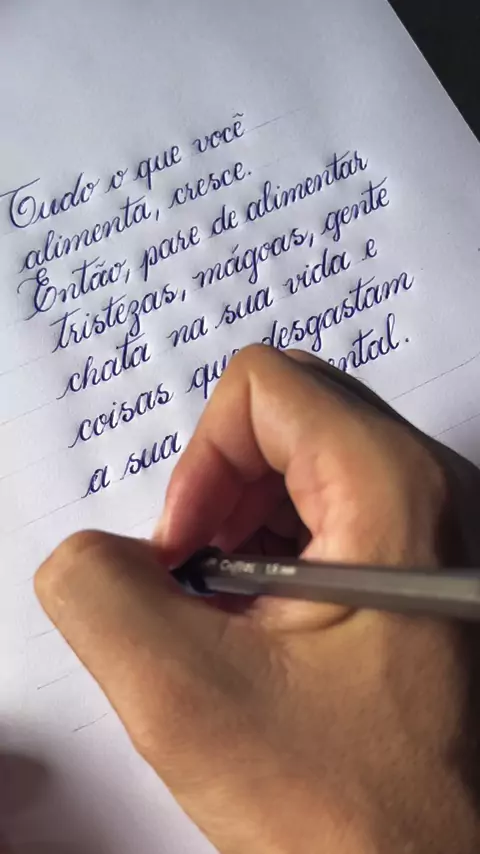 Tudo o que você
alimenta, cresce.
Então, pare de alimentar
tristezas, mágoas, gente
chata na sua vida e
coisas que desgastam
a sua